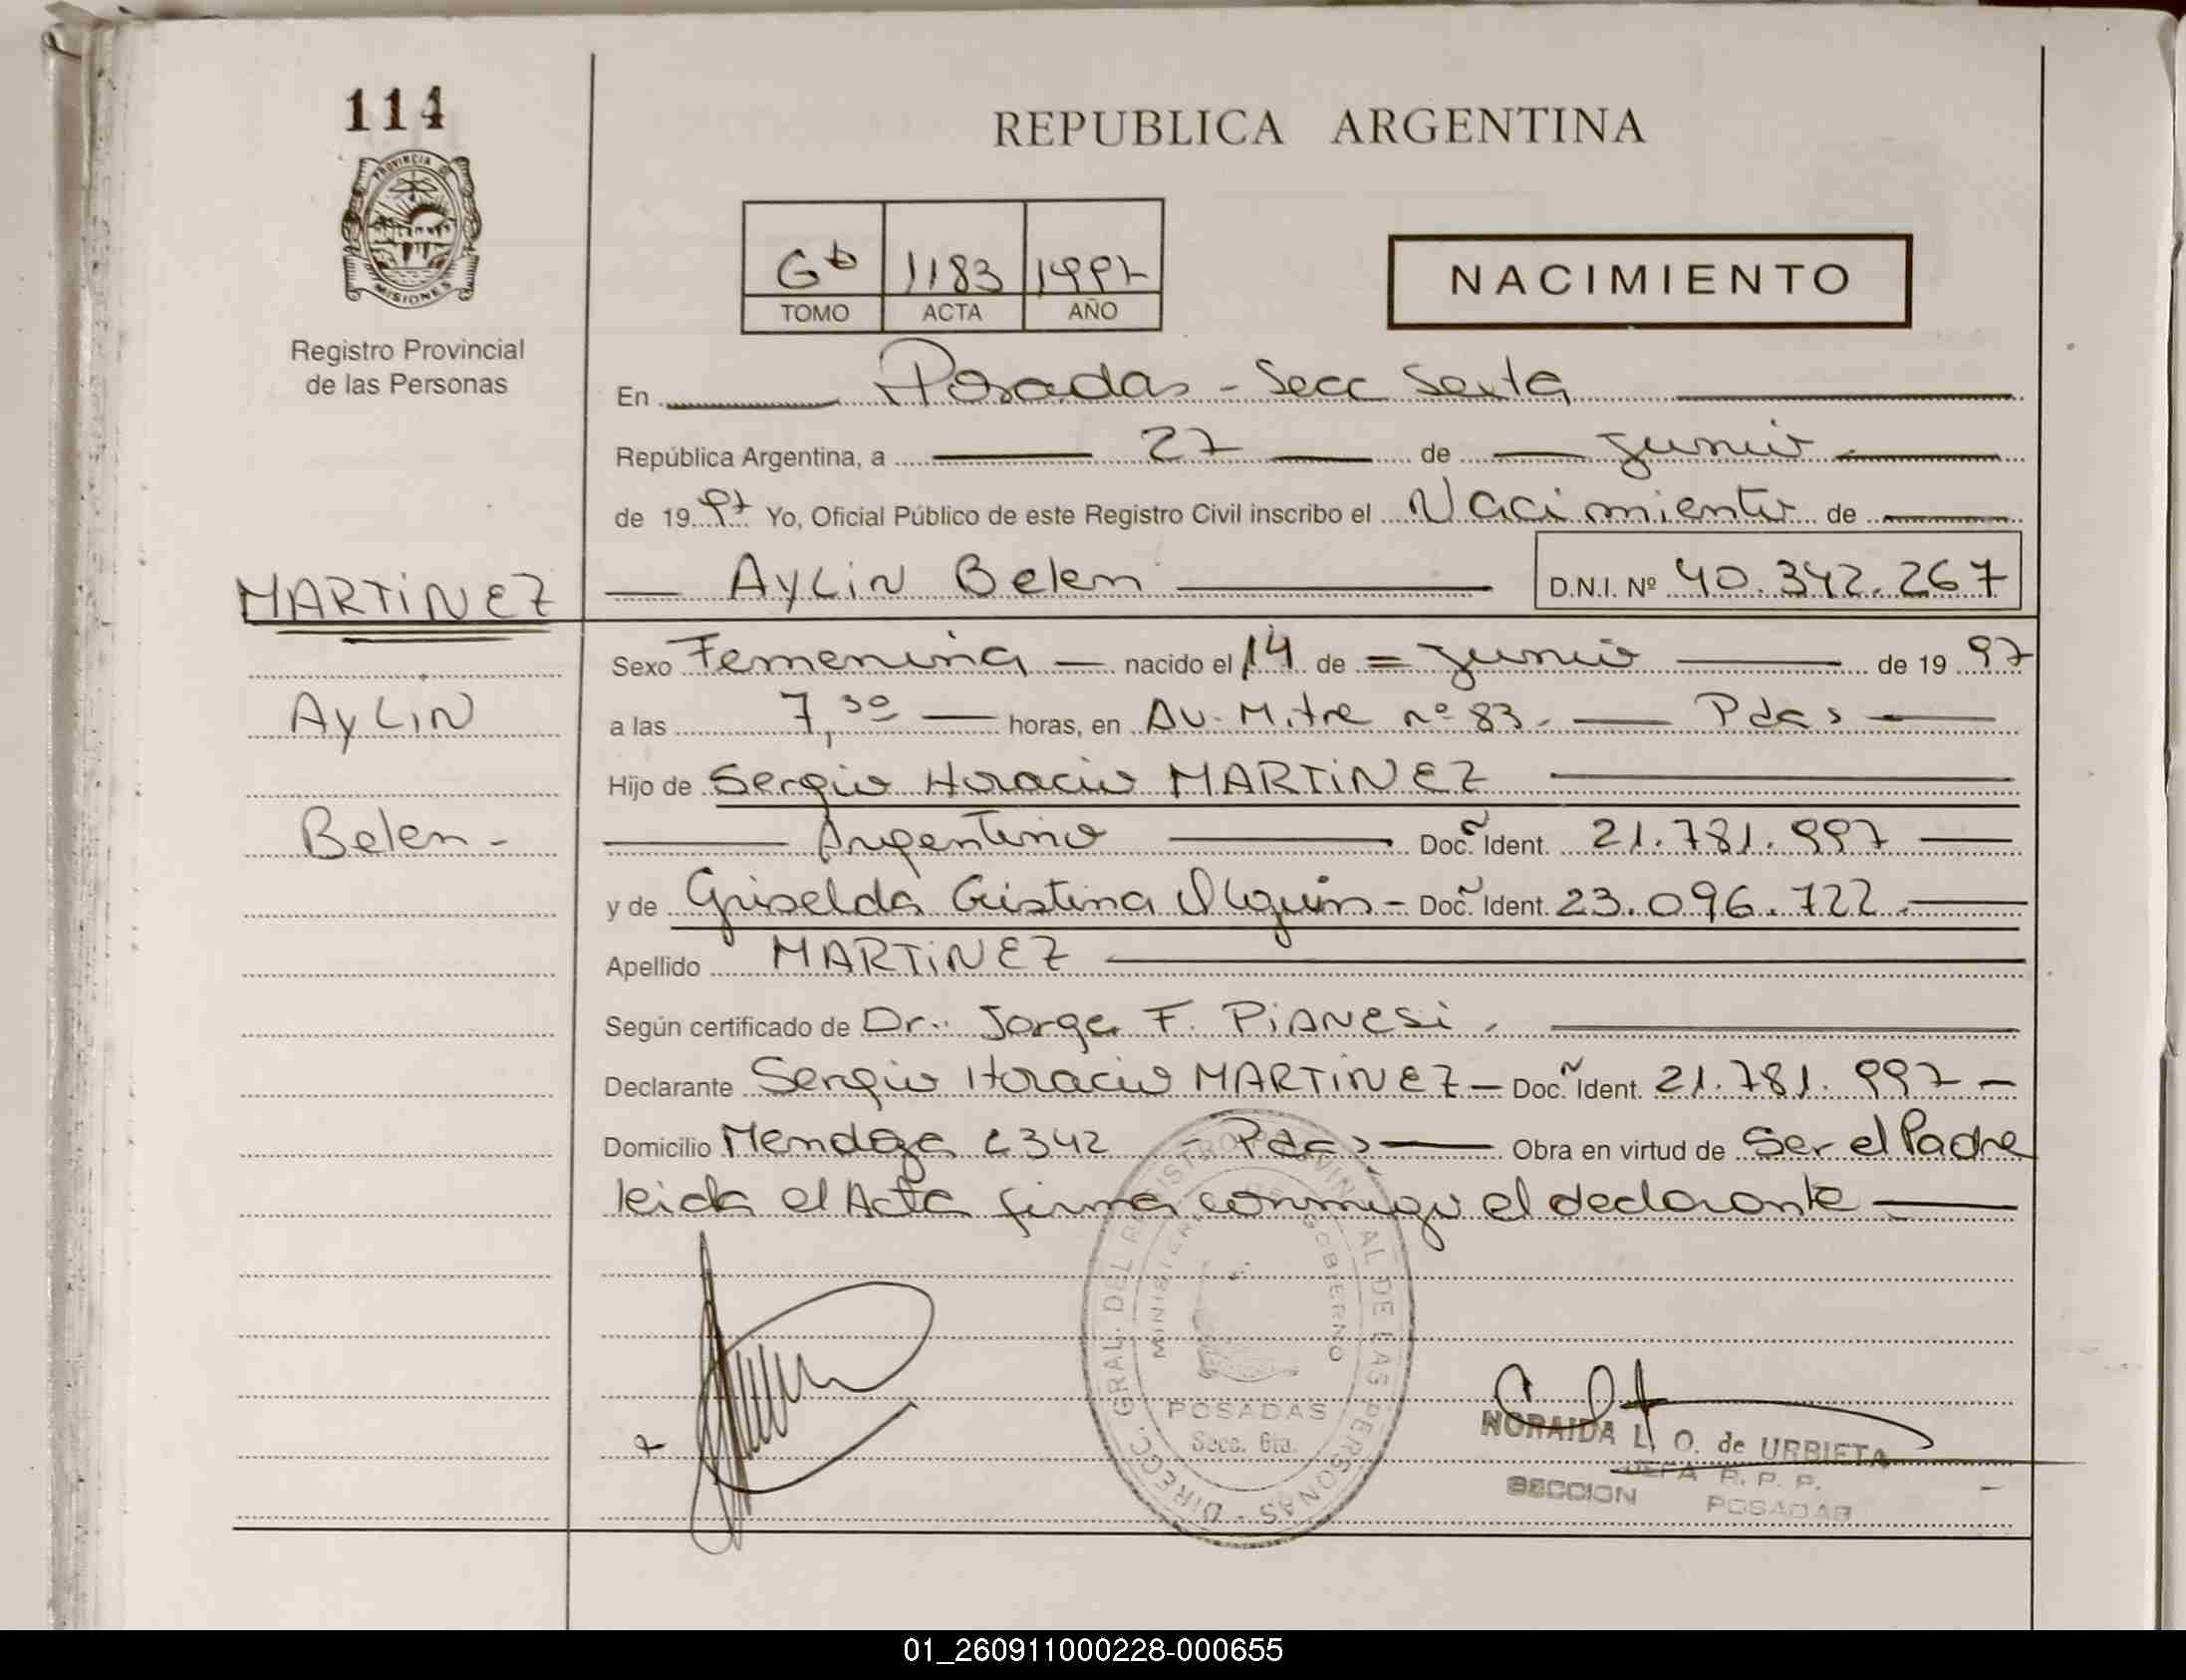 114
REPUBLICA ARGENTINA
PROVINCIA DE
MISIONES
Registro Provincial
de las Personas
1183 1997
TOMO ACTA AÑO
NACIMIENTO
En Posadas - Secc Sexta
República Argentina, a 27 de junio
de 1997 Yo, Oficial Público de este Registro Civil inscribo el Nacimiento de
MARTINEZ
Aylin
Belen -
Aylin Belen D.N.I. Nº 40.342.267
Sexo Femenina nacido el 14 de = junio de 1997
a las 7,30 horas, en Av. Mitre nº 83. Pdas
Hijo de Sergio Horacio MARTINEZ
Argentino Doc. Ident. 21.781.997
y de Griselda Cristina Olguin - Doc. Ident. 23.096.722.
Apellido MARTINEZ
Según certificado de Dr. Jorge F. Pianesi.
Declarante Sergio Horacio MARTINEZ - Doc. Ident. 21.781.997 -
Domicilio Mendoza 2342 - Pdas Obra en virtud de Ser el Padre
leida el Acta firma conmigo el declarante
DIRECC. GRAL. DEL REGISTRO PROVINCIAL DE LAS PERSONAS
MINISTERIO DE GOBIERNO
POSADAS
Secc. 6ta.
NORAIDA L. O. de URBIETA
JEFA R. P. P.
SECCION POSADAS
01_260911000228-000655